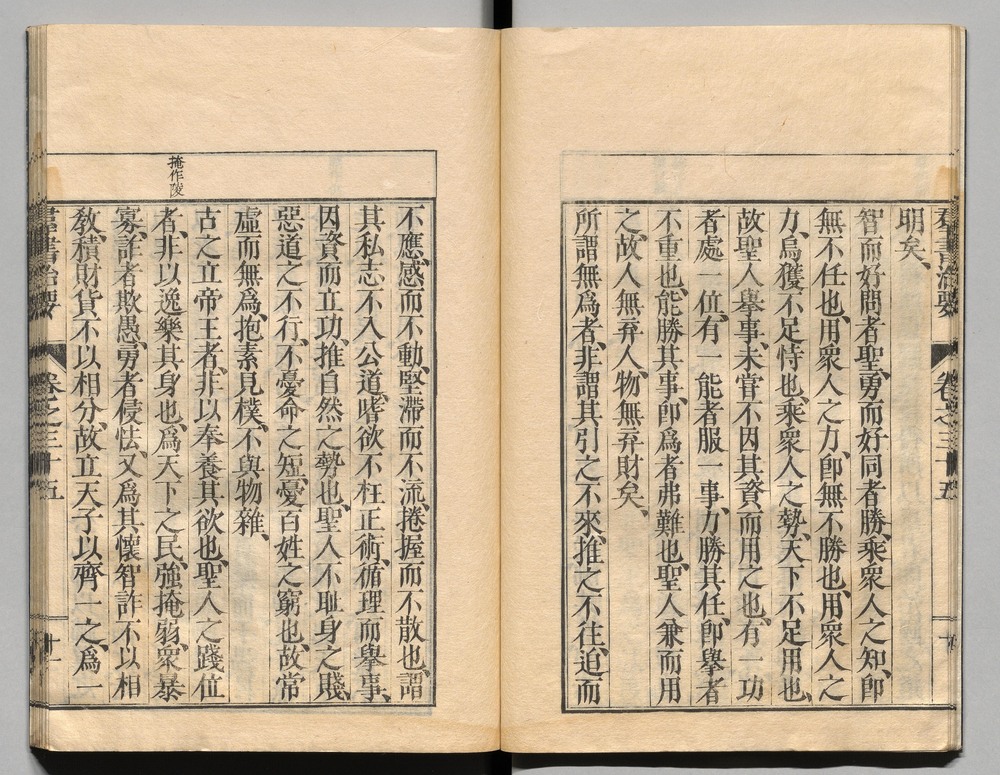 羣書治要 卷之三十五
明矣、
智而好問者聖、勇而好同者勝、乘衆人之知、卽
無不任也、用衆人之力、卽無不勝也、用衆人之
力、烏獲不足恃也、乘衆人之勢、天下不足用也、
故聖人舉事、未甞不因其資而用之也、有一功
者處一位、有一能者服一事、力勝其任、卽舉者
不重也、能勝其事、卽爲者弗難也、聖人兼而用
之、故人無弃人、物無弃財矣、
所謂無爲者、非謂其引之不來、推之不往、迫而
不應、感而不動、堅滯而不流、捲握而不散也、謂
其私志不入公道、嗜欲不枉正術、循理而舉事、
因資而立功、推自然之勢也、聖人不耻身之賤、
惡道之不行、不憂命之短、憂百姓之窮也、故常
虛而無爲、抱素見樸、不與物雜、
古之立帝王者、非以奉養其欲也、聖人之踐位
者、非以逸樂其身也、爲天下之民、強掩弱、衆暴
掩作陵
寡、詐者欺愚、勇者侵怯、又爲其懷智詐不以相
敎、積財貨不以相分、故立天子以齊一之、爲一
羣書治要 卷之三十五 十一